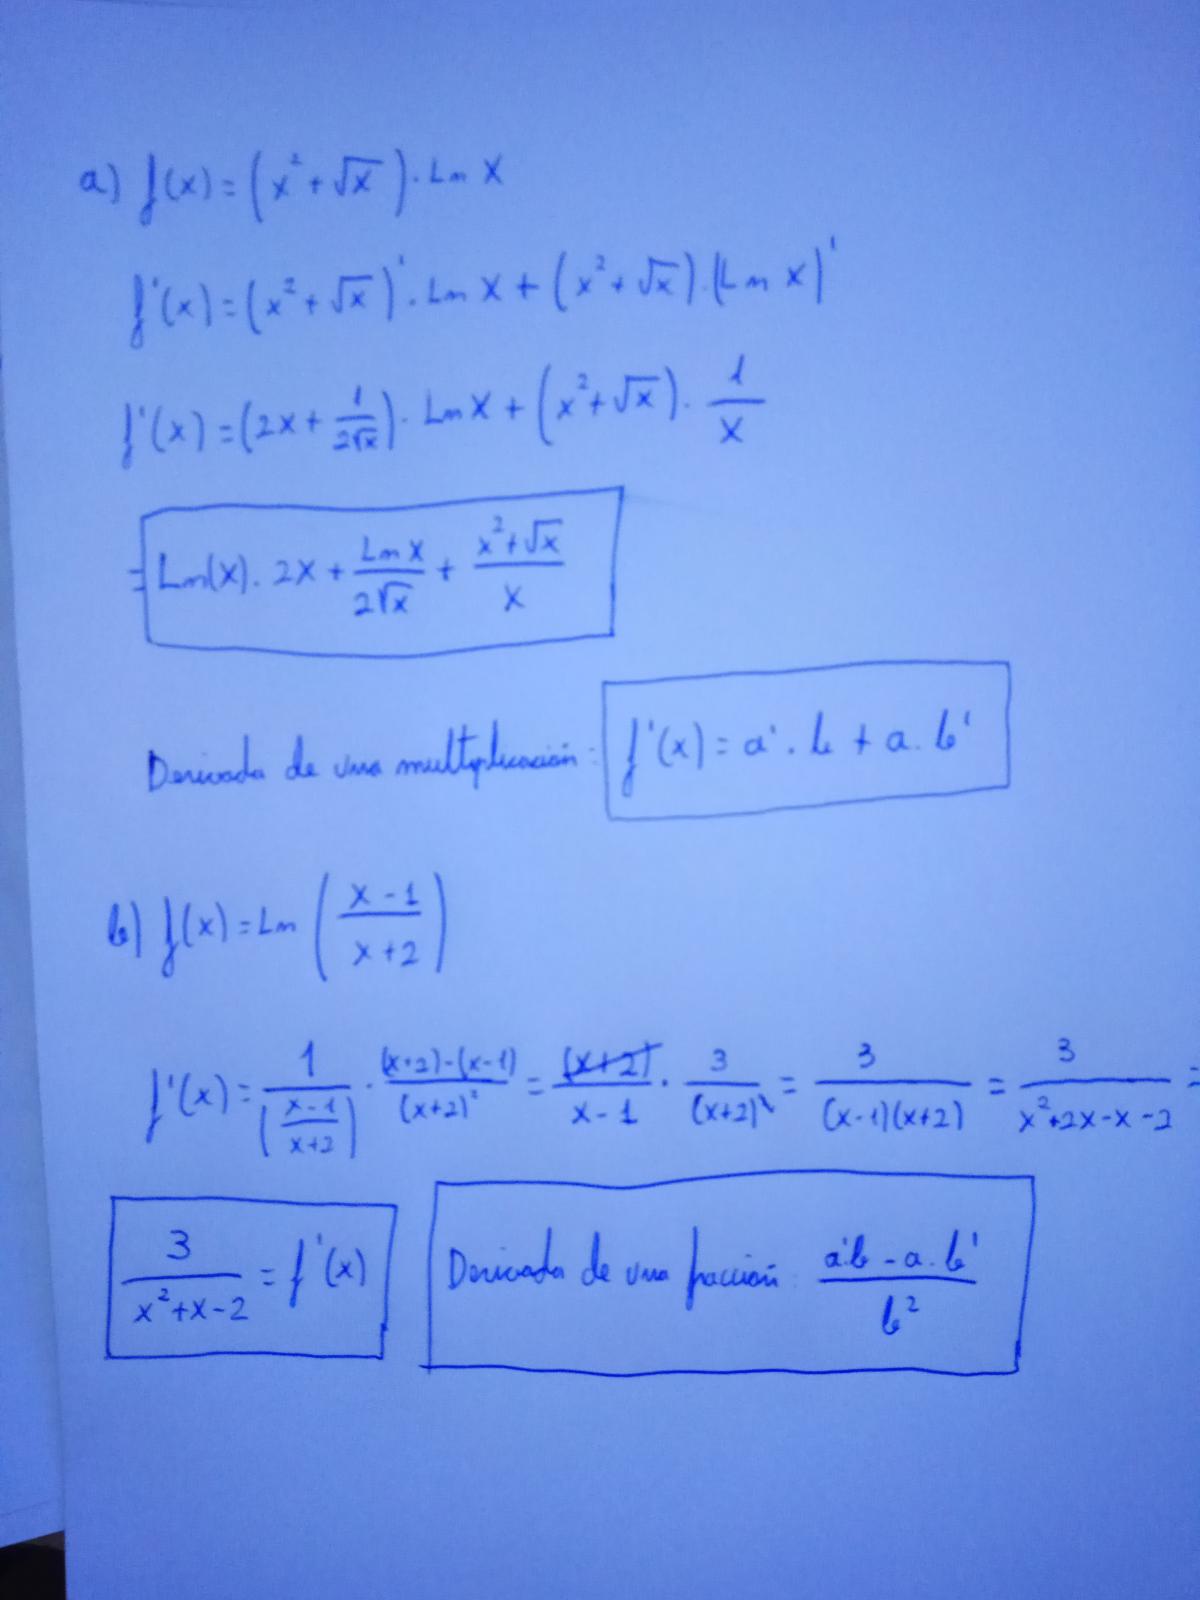 a) f(x) = (x² + √x) · Ln x
f'(x) = (x² + √x)' · Ln x + (x² + √x) · (Ln x)'
f'(x) = (2x + 1/(2√x)) · Ln x + (x² + √x) · 1/x
= Ln(x) · 2x + Ln x/(2√x) + (x² + √x)/x
Derivada de una multiplicación: f'(x) = a' · b + a · b'
b) f(x) = Ln ((x - 1)/(x + 2))
f'(x) = 1/((x - 1)/(x + 2)) · ((x+2) - (x-1))/(x+2)² = (x+2)/(x - 1) · 3/(x+2)² = 3/((x-1)(x+2)) = 3/(x² + 2x - x - 2) =
3/(x² + x - 2) = f'(x)
Derivada de una fracción: (a'b - a · b')/b²